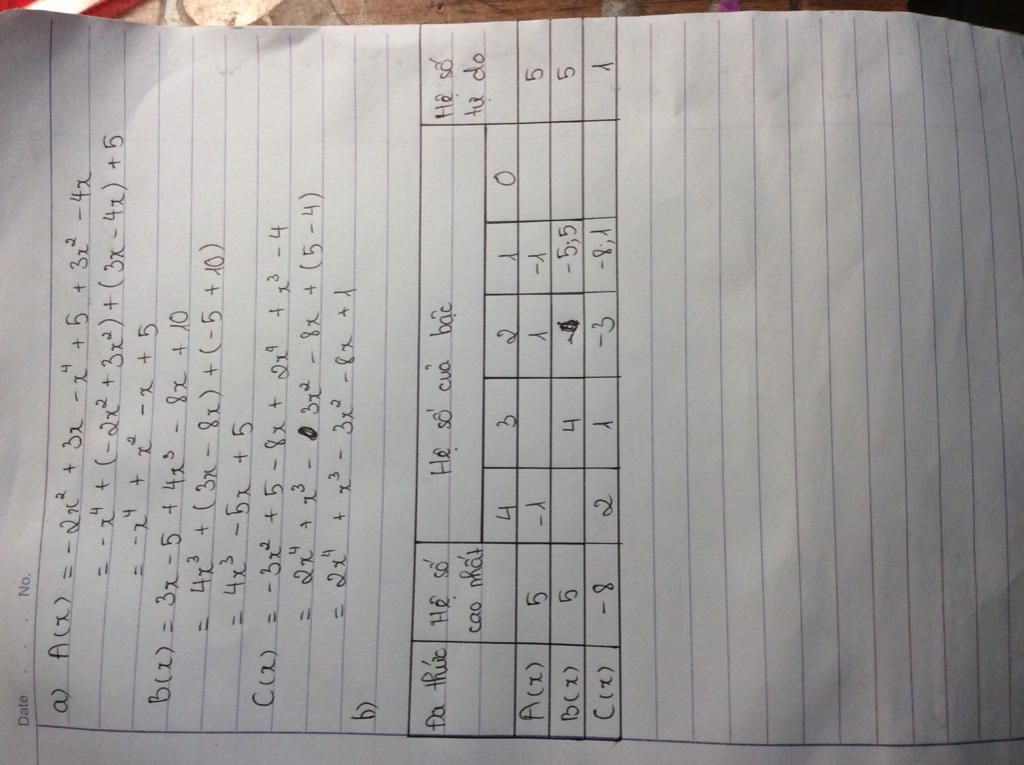 Date . . . No.
a) A(x) = -2x² + 3x - x⁴ + 5 + 3x² - 4x
= -x⁴ + (-2x² + 3x²) + (3x - 4x) + 5
= -x⁴ + x² - x + 5
B(x) = 3x - 5 + 4x³ - 8x + 10
= 4x³ + (3x - 8x) + (-5 + 10)
= 4x³ - 5x + 5
C(x) = -3x² + 5 - 8x + 2x⁴ + x³ - 4
= 2x⁴ + x³ - 3x² - 8x + (5 - 4)
= 2x⁴ + x³ - 3x² - 8x + 1
b)
Đa thức Hệ số cao nhất Hệ số của bậc Hệ số tự do
4 3 2 1 0
A(x) 5 -1 1 -1 5
B(x) 5 4 -5;5 5
C(x) -8 2 1 -3 -8;1 1